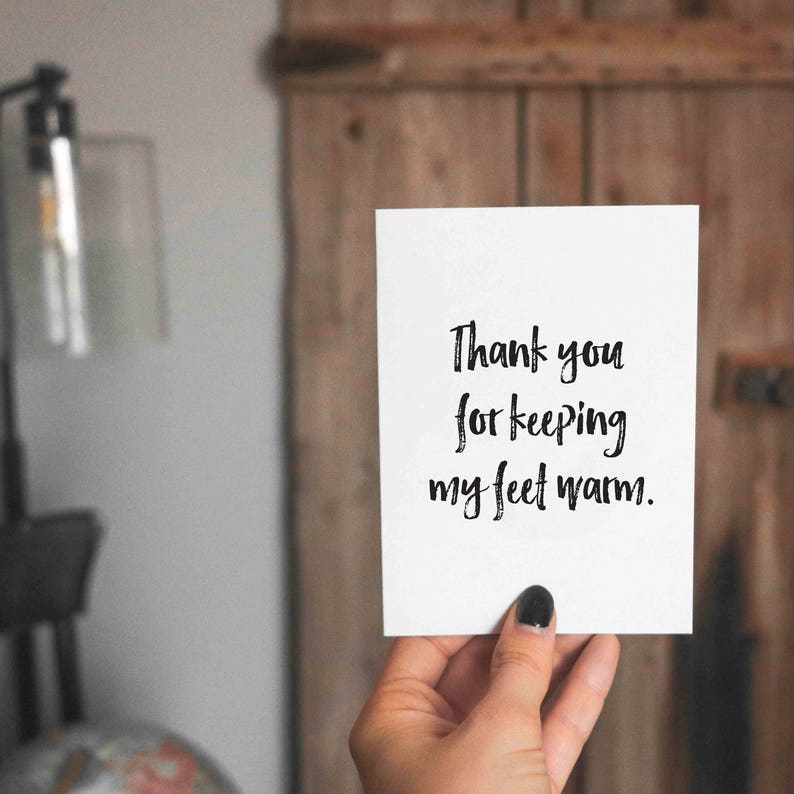 Thank you
for keeping
my feet warm.